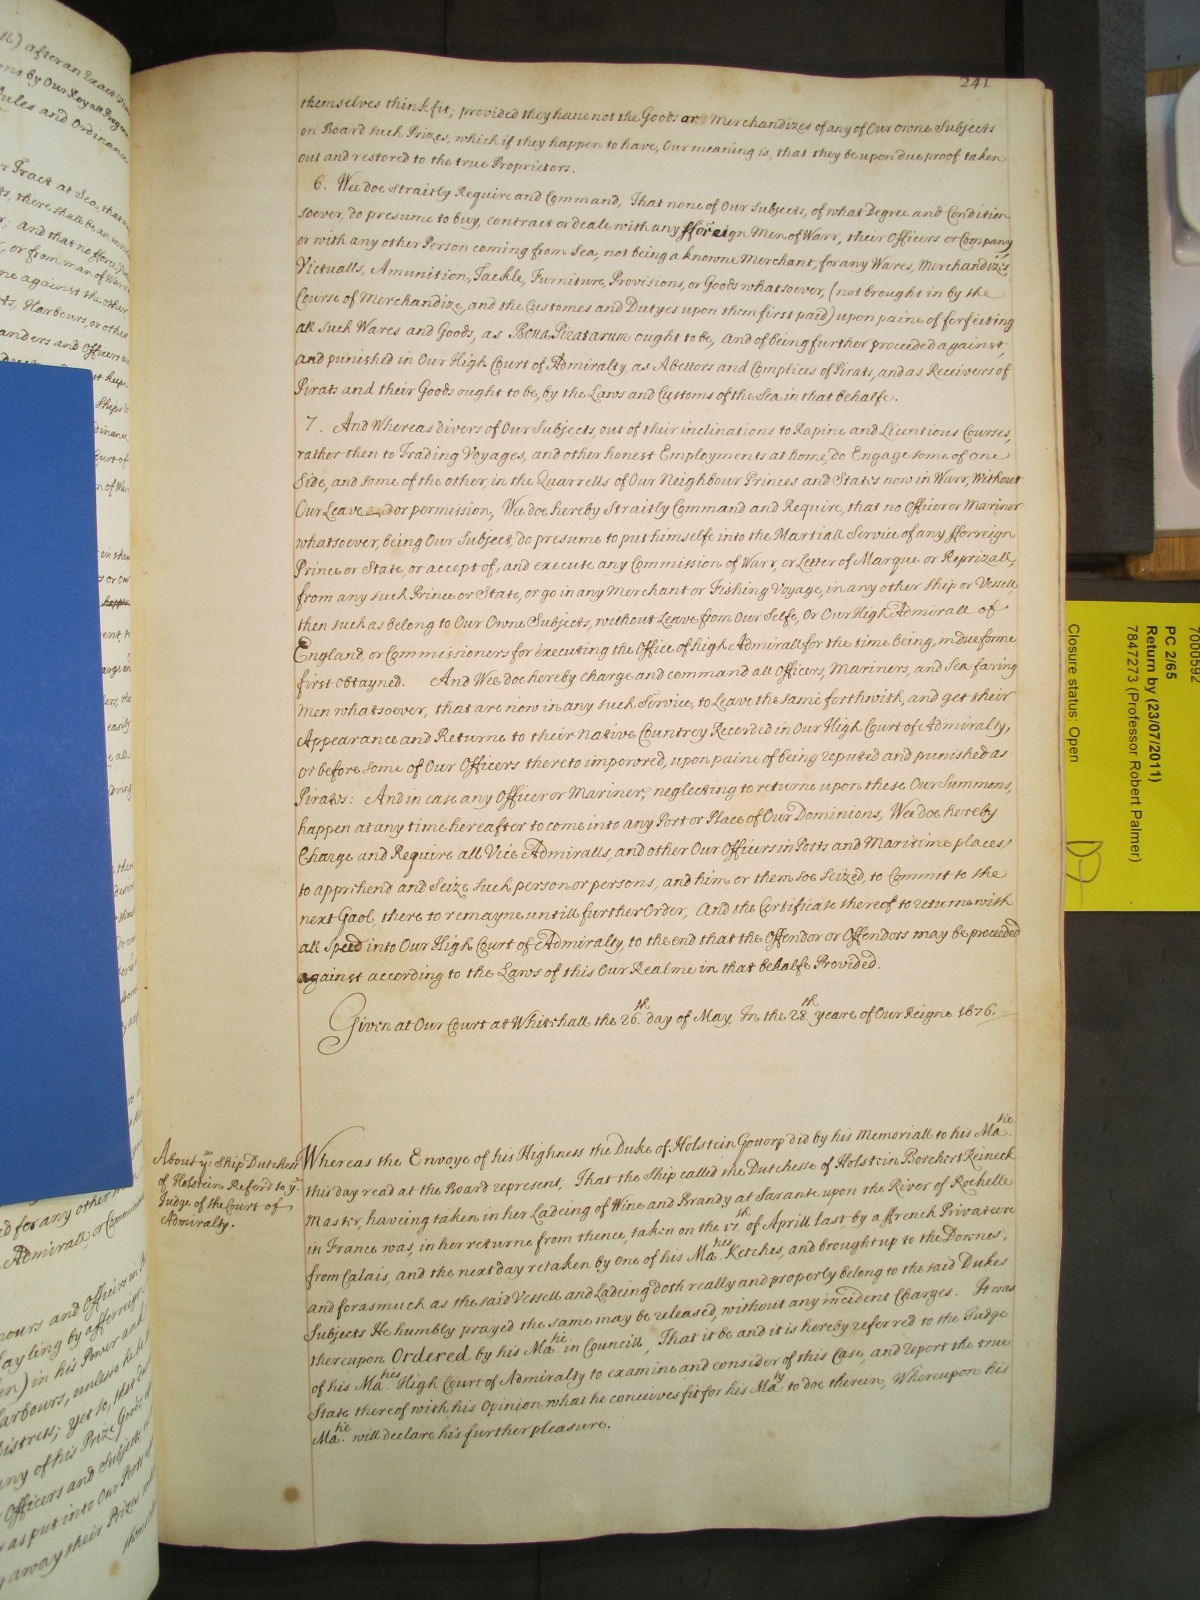 241
themselves think fit; provided they have not the Goods or Merchandizes of any of Our owne Subjects
on Board such Prizes, which if they happen to have, Our meaning is, that they be upon due proof taken
out and restored to the true Proprietors.
6. Wee doe Straitly Require and Command, That none of Our Subjects, of what Degree and Condition
soever, do presume to buy, contract or deale with any fforeign Men of Warr, their Officers or Company,
or with any other Person coming from Sea, not being a knowne Merchant, for any Wares, Merchandizes
Victualls, Amunition, Tackle, Furniture, Provisions, or Goods whatsoever, (not brought in by the
Course of Merchandize, and the Customes and Dutyes upon them first paid) upon paine of forfeiting
all such Wares and Goods, as Bona Piratarum ought to be, and of being further proceeded against,
and punished in Our High Court of Admiralty, as Abettors and Complices of Pirats, and as Receivers of
Pirats and their Goods ought to be, by the Laws and Customs of the Sea in that behalfe.
7. And Whereas divers of Our Subjects, out of their inclinations to Rapine and Licentious Courses,
rather then to Trading Voyages, and other honest Employments at home, do Engage some of one
Side, and some of the other, in the Quarrells of Our Neighbour Princes and States now in Warr, without
Our Leave or permission, Wee doe hereby Straitly Command and Require, that no Officer or Mariner
whatsoever, being Our Subject, do presume to put himselfe into the Martiall Service of any fforreign
Prince or State, or accept of, and execute any Commission of Warr, or Letter of Marque or Reprizall,
from any such Prince or State, or go in any Merchant or Fishing Voyage, in any other Ship or Vessell,
then such as belong to Our Owne Subjects, without Leave from Our Selfe, Or Our High Admirall of
England, or Commissioners for executing the Office of high Admirall for the time being, in due forme
first obtayned. And Wee doe hereby charge and command all Officers, Mariners, and Sea-faring
men whatsoever, that are now in any such Service, to Leave the same forthwith, and get their
Appearance and Returne to their Native Countrey Recorded in Our High Court of Admiralty,
or before some of Our Officers thereto impowred, upon paine of being reputed and punished as
Pirats: And in case any Officer or Mariner, neglecting to returne upon these Our Summons,
happen at any time hereafter to come into any Port or Place of Our Dominions, Wee doe hereby
Charge and Require all Vice Admiralls, and other Our Officers in Ports and Maritime places,
to apprehend and Seize such person or persons, and him or them soe Seized, to Commit to the
next Gaol, there to remayne untill further Order, And the Certificate thereof to returne with
all Speed into Our High Court of Admiralty, to the end that the Offendor or Offendors may be proceeded
against according to the Laws of this Our Realme in that behalfe Provided.
Given at Our Court at Whitehall the 26th. day of May. In the 28th. yeare of Our Reigne 1676.
About ye. Ship Dutchess
of Holstein Referd to ye.
Judge of the Court of
Admiralty.
Whereas the Envoye of his Highness the Duke of Holstein Gottorp did by his Memoriall to his Matie.
this day read at the Board represent, That the Ship called the Dutchesse of Holstein Borchert Reineck
Master, haveing taken in her Ladeing of Wine and Brandy at Sarante upon the River of Rochelle
in France was, in her returne from thence, taken on the 17th of Aprill last, by a ffrench Privateere
from Calais, and the next day retaken by one of his Mats Ketches, and brought up to the Downes,
and forasmuch as the said Vessell and Ladeing doth really and properly belong to the said Dukes
Subjects He humbly prayed the same may be released, without any incident Charges. It was
thereupon Ordered by his Matie. in Councill, That it be and it is hereby referred to the Judge
of his Maties. High Court of Admiralty to examine and consider of this Case, and report the true
State thereof with his Opinion what he conceives fit for his Maty to doe therein, Whereupon his
Matie. will declare his further pleasure.
7000592
PC 2/65
Return by (23/07/2011)
7847273 (Professor Robert Palmer)
Closure status: Open